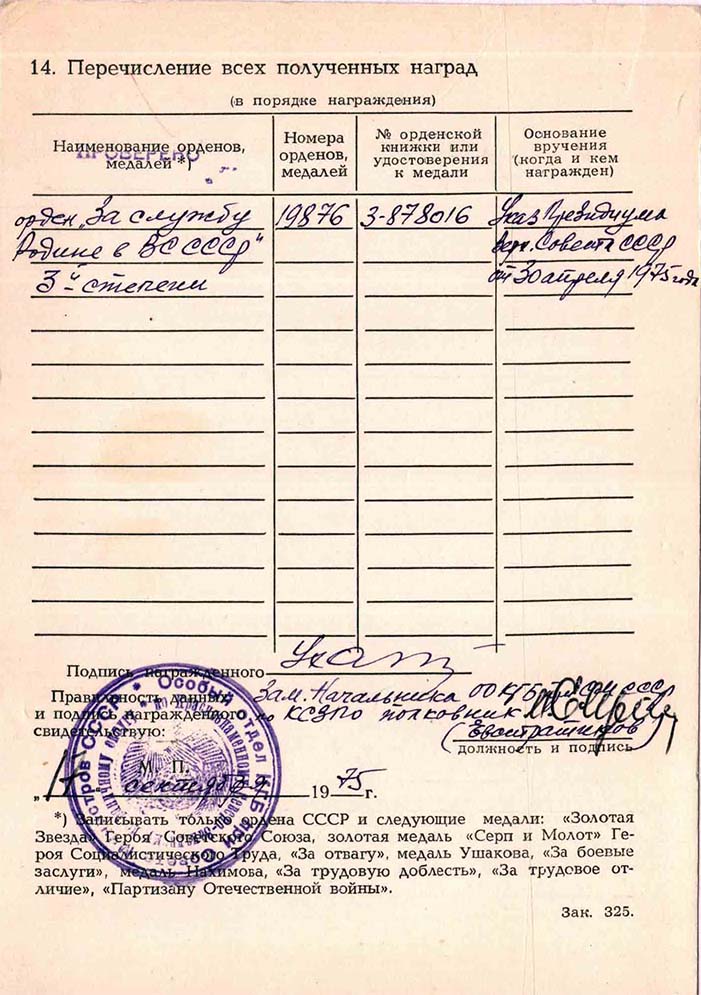 14. Перечисление всех полученных наград
(в порядке награждения)
Наименование орденов,
медалей *)
Номера
орденов,
медалей
№ орденской
книжки или
удостоверения
к медали
Основание
вручения
(когда и кем
награжден)
ПРОВЕРЕНО
орден „За службу 19876 3-878016 Указ Президиума
Родине в ВС СССР" Верх. Совета СССР
3й степени от 30 апреля 1975 года
Подпись награжденного
Правильность данных Зам. Начальника ОО КГБ при СМ СССР
и подпись награжденного по КСЗПО полковник
свидетельствую: (Евстратиков)
должность и подпись
М. П.
„17 сентября 1975 г.
*) Записывать только ордена СССР и следующие медали: «Золотая
Звезда» Героя Советского Союза, золотая медаль «Серп и Молот» Ге-
роя Социалистического Труда, «За отвагу», медаль Ушакова, «За боевые
заслуги», медаль Нахимова, «За трудовую доблесть», «За трудовое от-
личие», «Партизану Отечественной войны».
Зак. 325.
Особый отдел КГБ при